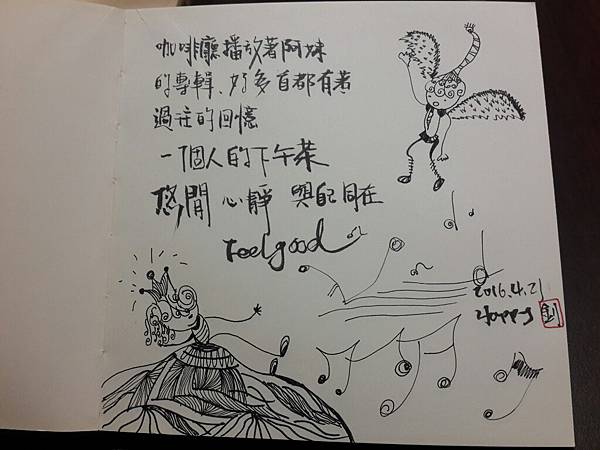 咖啡廳播放著阿妹
的專輯、好多首都有著
過往的回憶
一個人的下午茶
悠閒 心靜 與自己同在
Feel good
2016.4.21